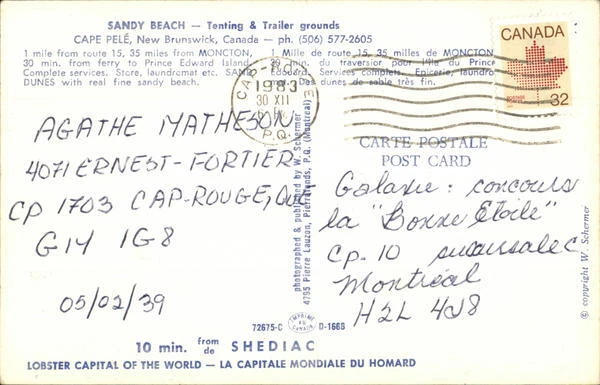 SANDY BEACH — Tenting & Trailer grounds
CAPE PELÉ, New Brunswick, Canada — ph. (506) 577-2605
1 mile from route 15, 35 miles from MONCTON,
30 min. from ferry to Prince Edward Island.
Complete services. Store, laundromat etc. SAND
DUNES with real fine sandy beach.
1 Mille de route 15, 35 milles de MONCTON,
30 min. du traversier pour l'île du Prince
Edouard. Services complets. Epicerie, laundro
Des dunes de sable très fin.
CANADA
POSTAGE
POSTES
32
CAP-ROUGE
1983
30 XII
P.Q.
CARTE POSTALE
POST CARD
AGATHE MATHESON
4071 ERNEST-FORTIER
CP 1703 CAP-ROUGE, Que
G1Y 1G8
05/02/39
Galaxie: concours
la "Bonne Etoile"
Cp. 10 succursale C
Montréal
H2L 4J8
photographed & published by W. Schermer
4795 Pierre Lauzon, Pierrefonds, P.Q. (Montreal)
© copyright W. Schermer
72675-C
IMPRIME
AU
CANADA
D-1668
10 min. from de SHEDIAC
LOBSTER CAPITAL OF THE WORLD — LA CAPITALE MONDIALE DU HOMARD